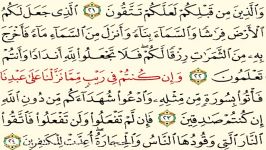 وَالَّذِينَ مِن قَبْلِكُمْ لَعَلَّكُمْ تَتَّقُونَ ٢١ الَّذِي جَعَلَ لَكُمُ
الْأَرْضَ فِرَاشًا وَالسَّمَاءَ بِنَاءً وَأَنزَلَ مِنَ السَّمَاءِ مَاءً فَأَخْرَجَ
بِهِ مِنَ الثَّمَرَاتِ رِزْقًا لَّكُمْ فَلَا تَجْعَلُوا لِلَّهِ أَندَادًا وَأَنتُمْ
تَعْلَمُونَ ٢٢ وَإِن كُنتُمْ فِي رَيْبٍ مِّمَّا نَزَّلْنَا عَلَىٰ عَبْدِنَا
فَأْتُوا بِسُورَةٍ مِّن مِّثْلِهِ وَادْعُوا شُهَدَاءَكُم مِّن دُونِ اللَّهِ
إِن كُنتُمْ صَادِقِينَ ٢٣ فَإِن لَّمْ تَفْعَلُوا وَلَن تَفْعَلُوا فَاتَّقُوا
النَّارَ الَّتِي وَقُودُهَا النَّاسُ وَالْحِجَارَةُ أُعِدَّتْ لِلْكَافِرِينَ ٢٤